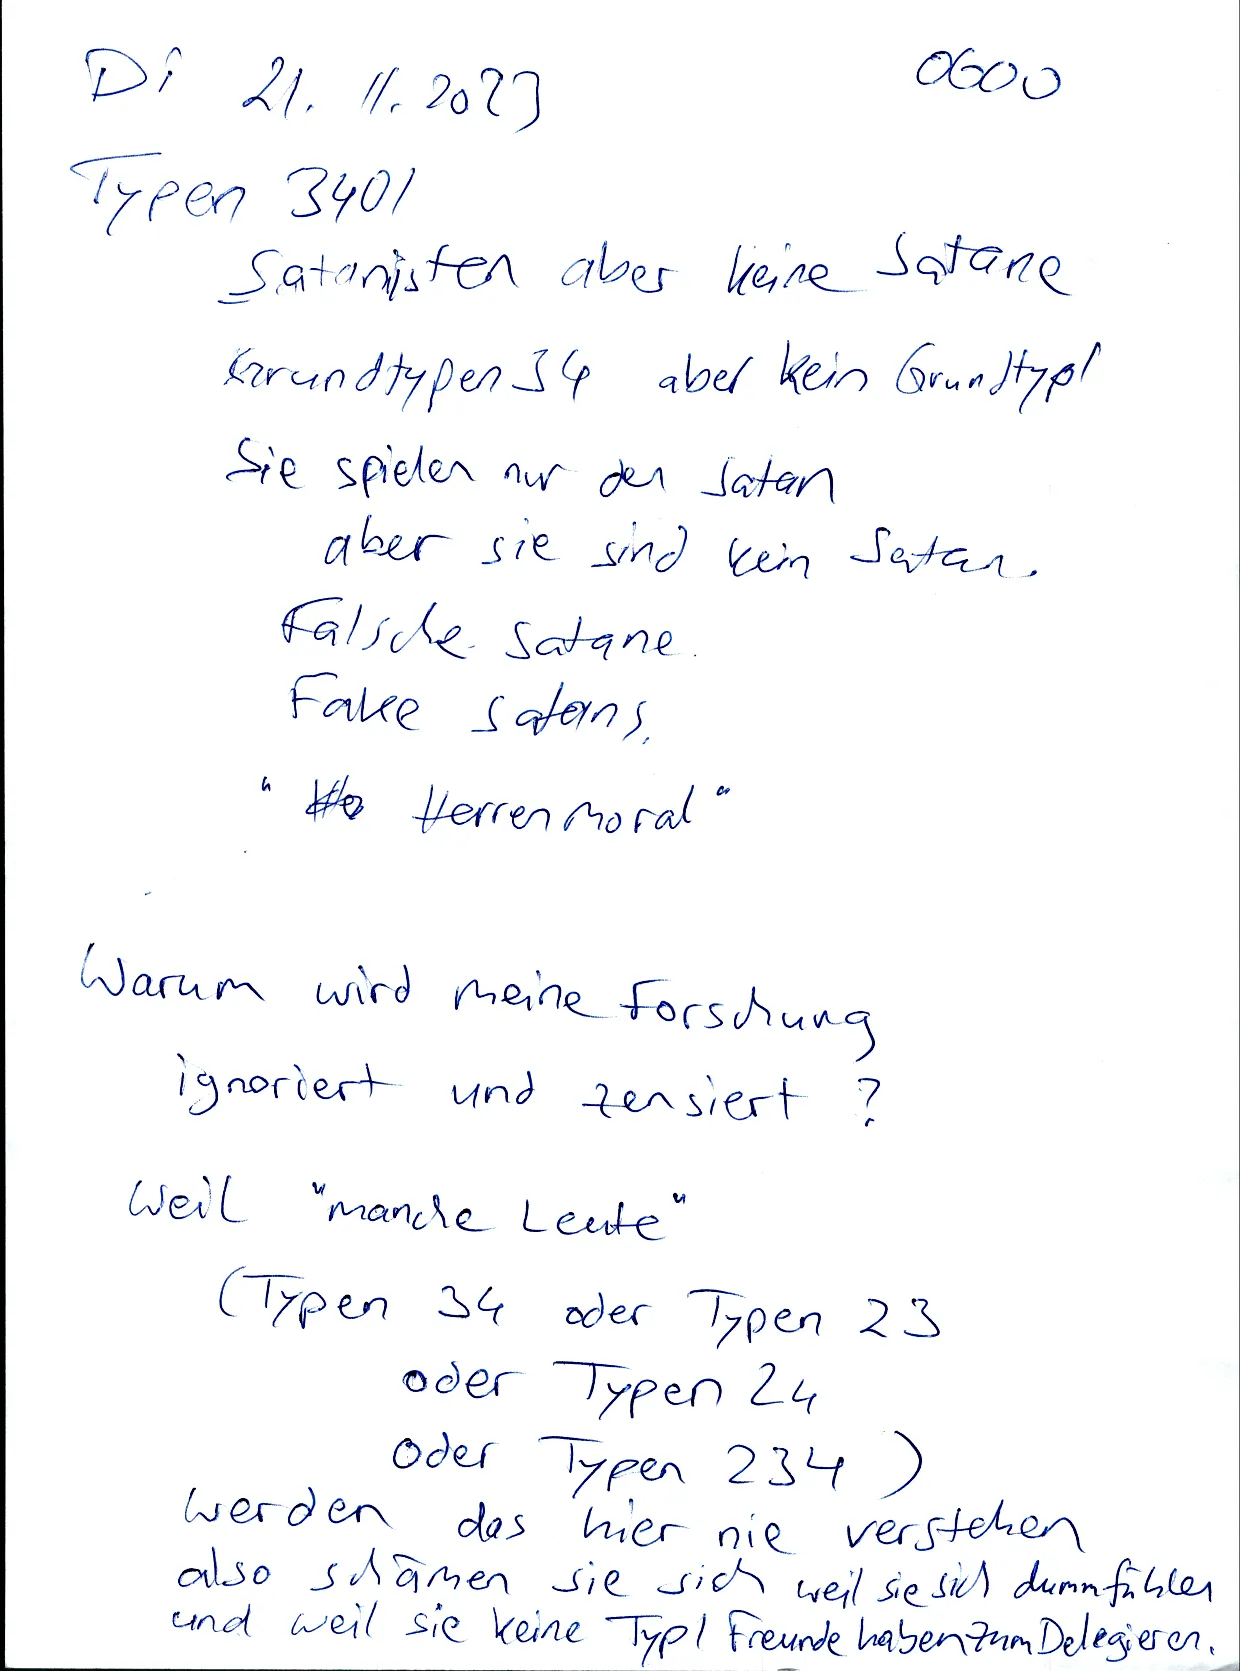 Di 21.11.2023 0600
Typen 3401
Satanisten aber keine Satane
Grundtypen 34 aber kein Grundtyp1
Sie spielen nur den Satan
aber sie sind kein Satan.
Falsche Satane.
Fake Satans.
" Herrenmoral "
Warum wird meine Forschung
ignoriert und zensiert ?
Weil "manche Leute"
(Typen 34 oder Typen 23
oder Typen 24
oder Typen 234 )
werden das hier nie verstehen
also schämen sie sich weil sie sich dumm fühlen
und weil sie keine Typ1 Freunde haben zum Delegieren.